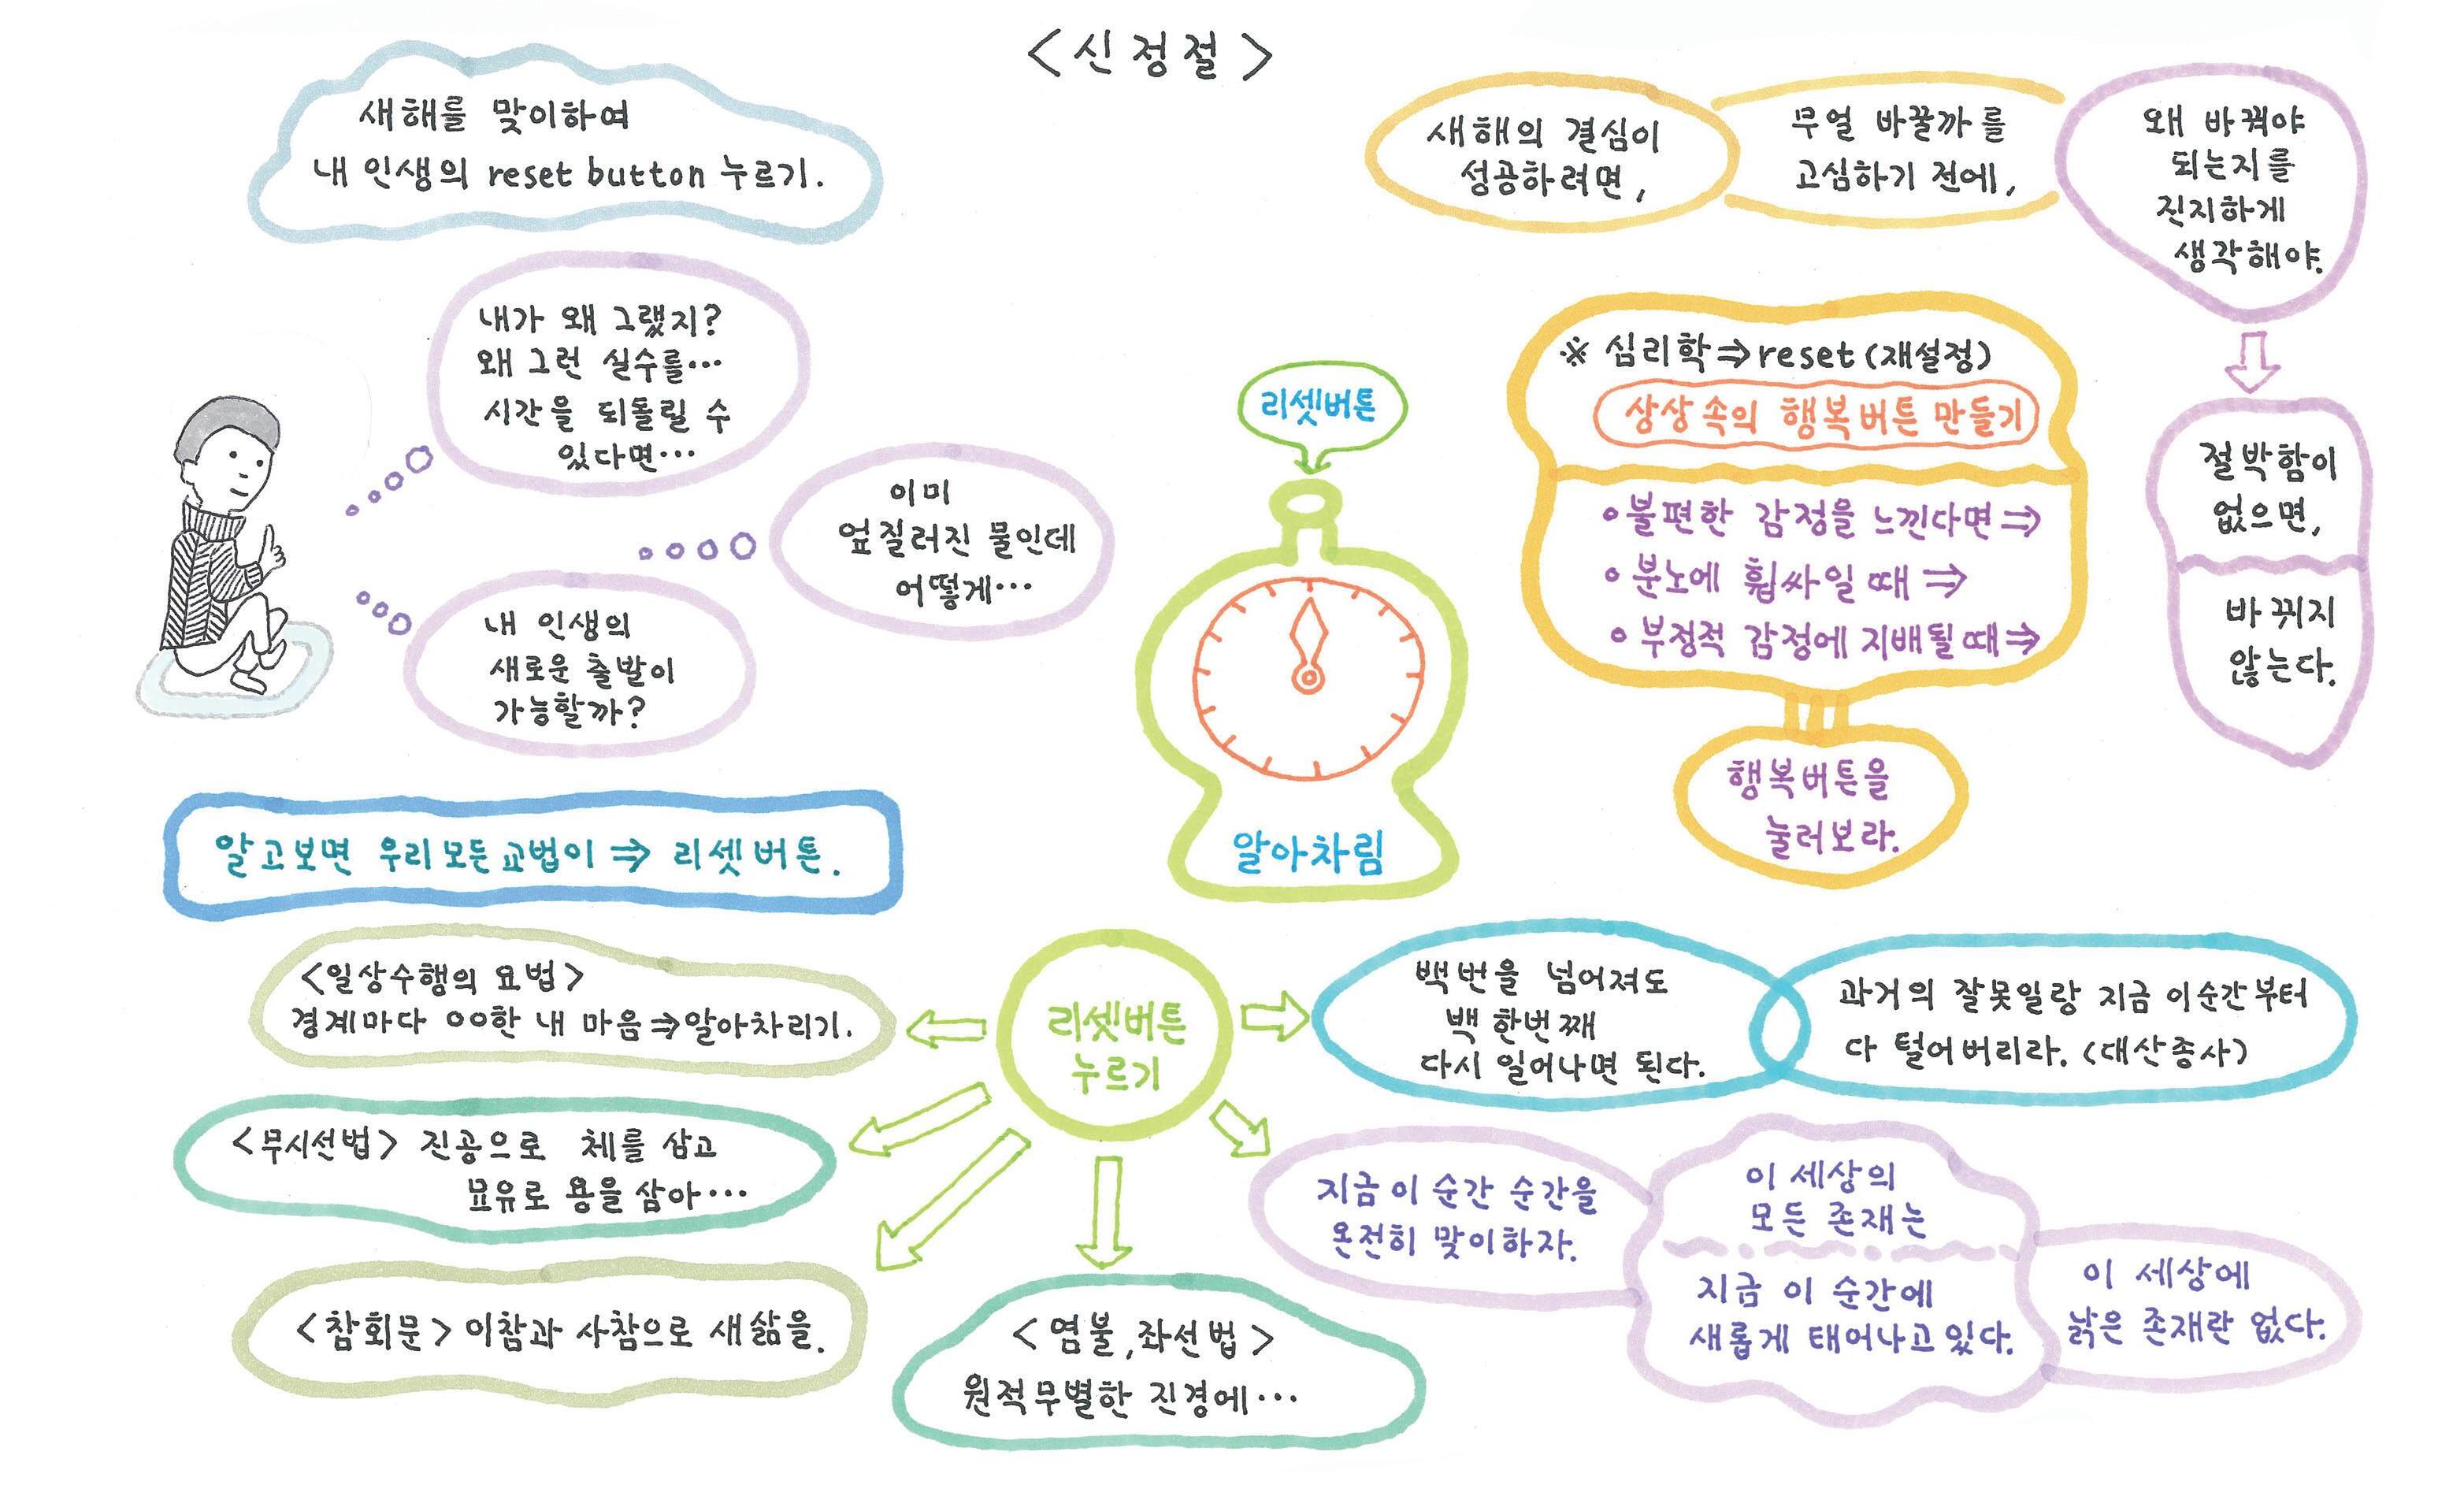 <신정절>
새해를 맞이하여
내 인생의 reset button 누르기.
내가 왜 그랬지?
왜 그런 실수를…
시간을 되돌릴 수
있다면…
이미
엎질러진 물인데
어떻게…
내 인생의
새로운 출발이
가능할까?
새해의 결심이
성공하려면,
무얼 바꿀까를
고심하기 전에,
왜 바꿔야
되는지를
진지하게
생각해야.
절박함이
없으면,
바뀌지
않는다.
※ 심리학⇒reset(재설정)
상상 속의 행복버튼 만들기
•불편한 감정을 느낀다면⇒
•분노에 휩싸일 때⇒
•부정적 감정에 지배될 때⇒
행복버튼을
눌러보라.
리셋버튼
알아차림
알고보면 우리 모든 교법이 ⇒ 리셋버튼.
리셋버튼
누르기
<일상수행의 요법>
경계마다 OO한 내 마음⇒알아차리기.
<무시선법> 진공으로 체를 삼고
묘유로 용을 삼아…
<참회문> 이참과 사참으로 새삶을.
<염불,좌선법>
원적무별한 진경에…
백번을 넘어져도
백 한번째
다시 일어나면 된다.
과거의 잘못일랑 지금 이순간부터
다 털어버리라. (대산종사)
지금 이 순간 순간을
온전히 맞이하자.
이 세상의
모든 존재는
지금 이 순간에
새롭게 태어나고 있다.
이 세상에
낡은 존재란 없다.